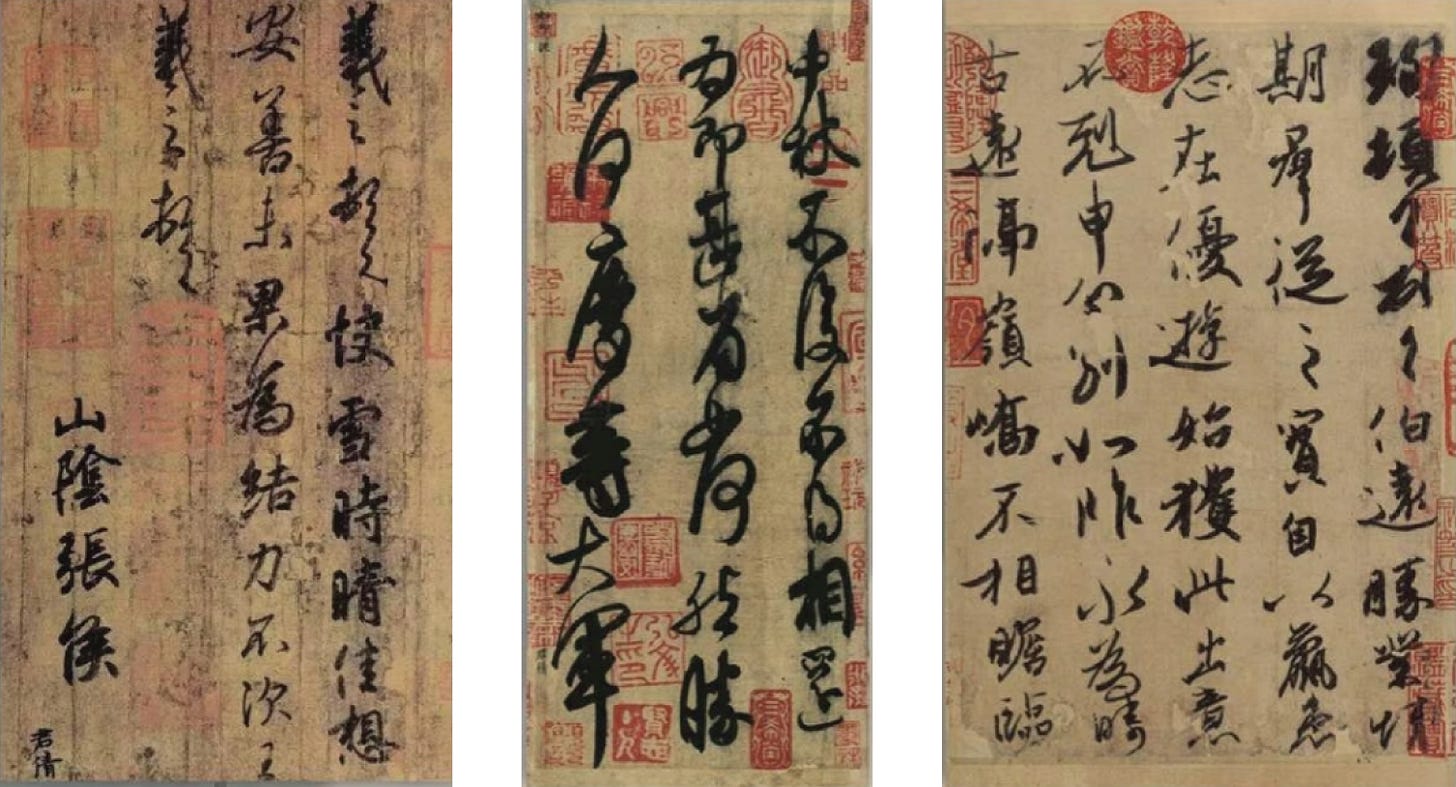 羲之頓首快雪時晴佳想
安善未果為結力不次王
羲之頓首
山陰張侯
君倩
中秋不復不得相還
為即甚省如何然勝
人何慶等大軍
珣頓首頓首伯遠勝業情
期群從之寶自以羸患
志在優遊始獲此出意
不剋申分別如昨永為疇
古遠隔嶺嶠不相瞻臨
乾隆鑑賞
三希堂